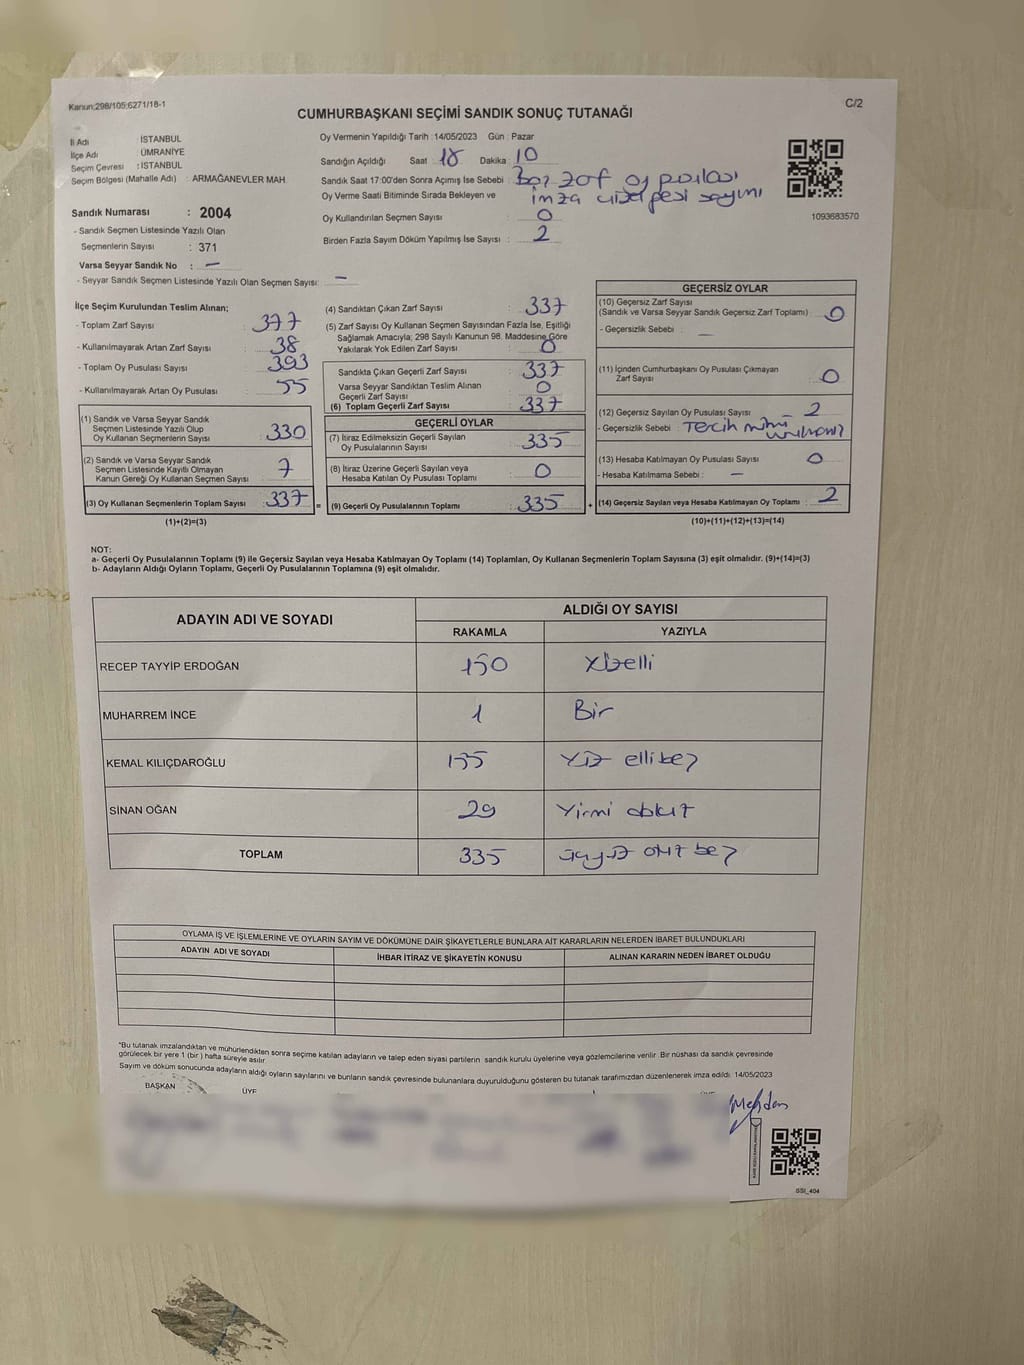 Kanun:298/105;6271/18-1
C/2
CUMHURBAŞKANI SEÇİMİ SANDIK SONUÇ TUTANAĞI
İl Adı İSTANBUL
İlçe Adı ÜMRANİYE
Seçim Çevresi : İSTANBUL
Seçim Bölgesi (Mahalle Adı) : ARMAĞANEVLER MAH.
Sandık Numarası : 2004
- Sandık Seçmen Listesinde Yazılı Olan
Seçmenlerin Sayısı : 371
Varsa Seyyar Sandık No : -
- Seyyar Sandık Seçmen Listesinde Yazılı Olan Seçmen Sayısı: -
Oy Vermenin Yapıldığı Tarih : 14/05/2023 Gün : Pazar
Sandığın Açıldığı Saat 18 Dakika : 10
Sandık Saat 17:00'den Sonra Açımış İse Sebebi : Boş zarf oy pusulası
Oy Verme Saati Bitiminde Sırada Bekleyen ve imza sayımı
Oy Kullandırılan Seçmen Sayısı : 0
Birden Fazla Sayım Döküm Yapılmış İse Sayısı : 2
1093683570
İlçe Seçim Kurulundan Teslim Alınan;
- Toplam Zarf Sayısı : 377
- Kullanılmayarak Artan Zarf Sayısı : 38
- Toplam Oy Pusulası Sayısı : 393
- Kullanılmayarak Artan Oy Pusulası : 55
(1) Sandık ve Varsa Seyyar Sandık
Seçmen Listesinde Yazılı Olup
Oy Kullanan Seçmenlerin Sayısı : 330
(2) Sandık ve Varsa Seyyar Sandık
Seçmen Listesinde Kayıtlı Olmayan
Kanun Gereği Oy Kullanan Seçmen Sayısı : 7
(3) Oy Kullanan Seçmenlerin Toplam Sayısı : 337
(1)+(2)=(3)
(4) Sandıktan Çıkan Zarf Sayısı : 337
(5) Zarf Sayısı Oy Kullanan Seçmen Sayısından Fazla İse, Eşitliği
Sağlamak Amacıyla; 298 Sayılı Kanunun 98. Maddesine Göre
Yakılarak Yok Edilen Zarf Sayısı : 0
Sandıkta Çıkan Geçerli Zarf Sayısı : 337
Varsa Seyyar Sandıktan Teslim Alınan
Geçerli Zarf Sayısı : 0
(6) Toplam Geçerli Zarf Sayısı : 337
GEÇERLİ OYLAR
(7) İtiraz Edilmeksizin Geçerli Sayılan
Oy Pusulalarının Sayısı : 335
(8) İtiraz Üzerine Geçerli Sayılan veya
Hesaba Katılan Oy Pusulası Toplamı : 0
= (9) Geçerli Oy Pusulalarının Toplamı : 335
GEÇERSİZ OYLAR
(10) Geçersiz Zarf Sayısı
(Sandık ve Varsa Seyyar Sandık Geçersiz Zarf Toplamı) : 0
- Geçersizlik Sebebi : -
(11) İçinden Cumhurbaşkanı Oy Pusulası Çıkmayan
Zarf Sayısı : 0
(12) Geçersiz Sayılan Oy Pusulası Sayısı : 2
- Geçersizlik Sebebi : Tercih mührü
(13) Hesaba Katılmayan Oy Pusulası Sayısı : 0
- Hesaba Katılmama Sebebi : -
+ (14) Geçersiz Sayılan veya Hesaba Katılmayan Oy Toplamı : 2
(10)+(11)+(12)+(13)=(14)
NOT:
a- Geçerli Oy Pusulalarının Toplamı (9) ile Geçersiz Sayılan veya Hesaba Katılmayan Oy Toplamı (14) Toplamları, Oy Kullanan Seçmenlerin Toplam Sayısına (3) eşit olmalıdır. (9)+(14)=(3)
b- Adayların Aldığı Oyların Toplamı, Geçerli Oy Pusulalarının Toplamına (9) eşit olmalıdır.
ADAYIN ADI VE SOYADI ALDIĞI OY SAYISI
RAKAMLA YAZIYLA
RECEP TAYYİP ERDOĞAN 150 Yüzelli
MUHARREM İNCE 1 Bir
KEMAL KILIÇDAROĞLU 155 Yüz ellibeş
SİNAN OĞAN 29 Yirmi dokuz
TOPLAM 335 üçyüz otuz beş
OYLAMA İŞ VE İŞLEMLERİNE VE OYLARIN SAYIM VE DÖKÜMÜNE DAİR ŞİKAYETLERLE BUNLARA AİT KARARLARIN NELERDEN İBARET BULUNDUKLARI
ADAYIN ADI VE SOYADI İHBAR İTİRAZ VE ŞİKAYETİN KONUSU ALINAN KARARIN NEDEN İBARET OLDUĞU
*Bu tutanak imzalandıktan ve mühürlendikten sonra seçime katılan adayların ve talep eden siyasi partilerin sandık kurulu üyelerine veya gözlemcilerine verilir. Bir nüshası da sandık çevresinde
görülecek bir yere 1 (bir) hafta süreyle asılır.
Sayım ve döküm sonucunda adayların aldığı oyların sayılarını ve bunların sandık çevresinde bulunanlara duyurulduğunu gösteren bu tutanak tarafımızdan düzenlenerek imza edildi. 14/05/2023
BAŞKAN ÜYE
SSI_404